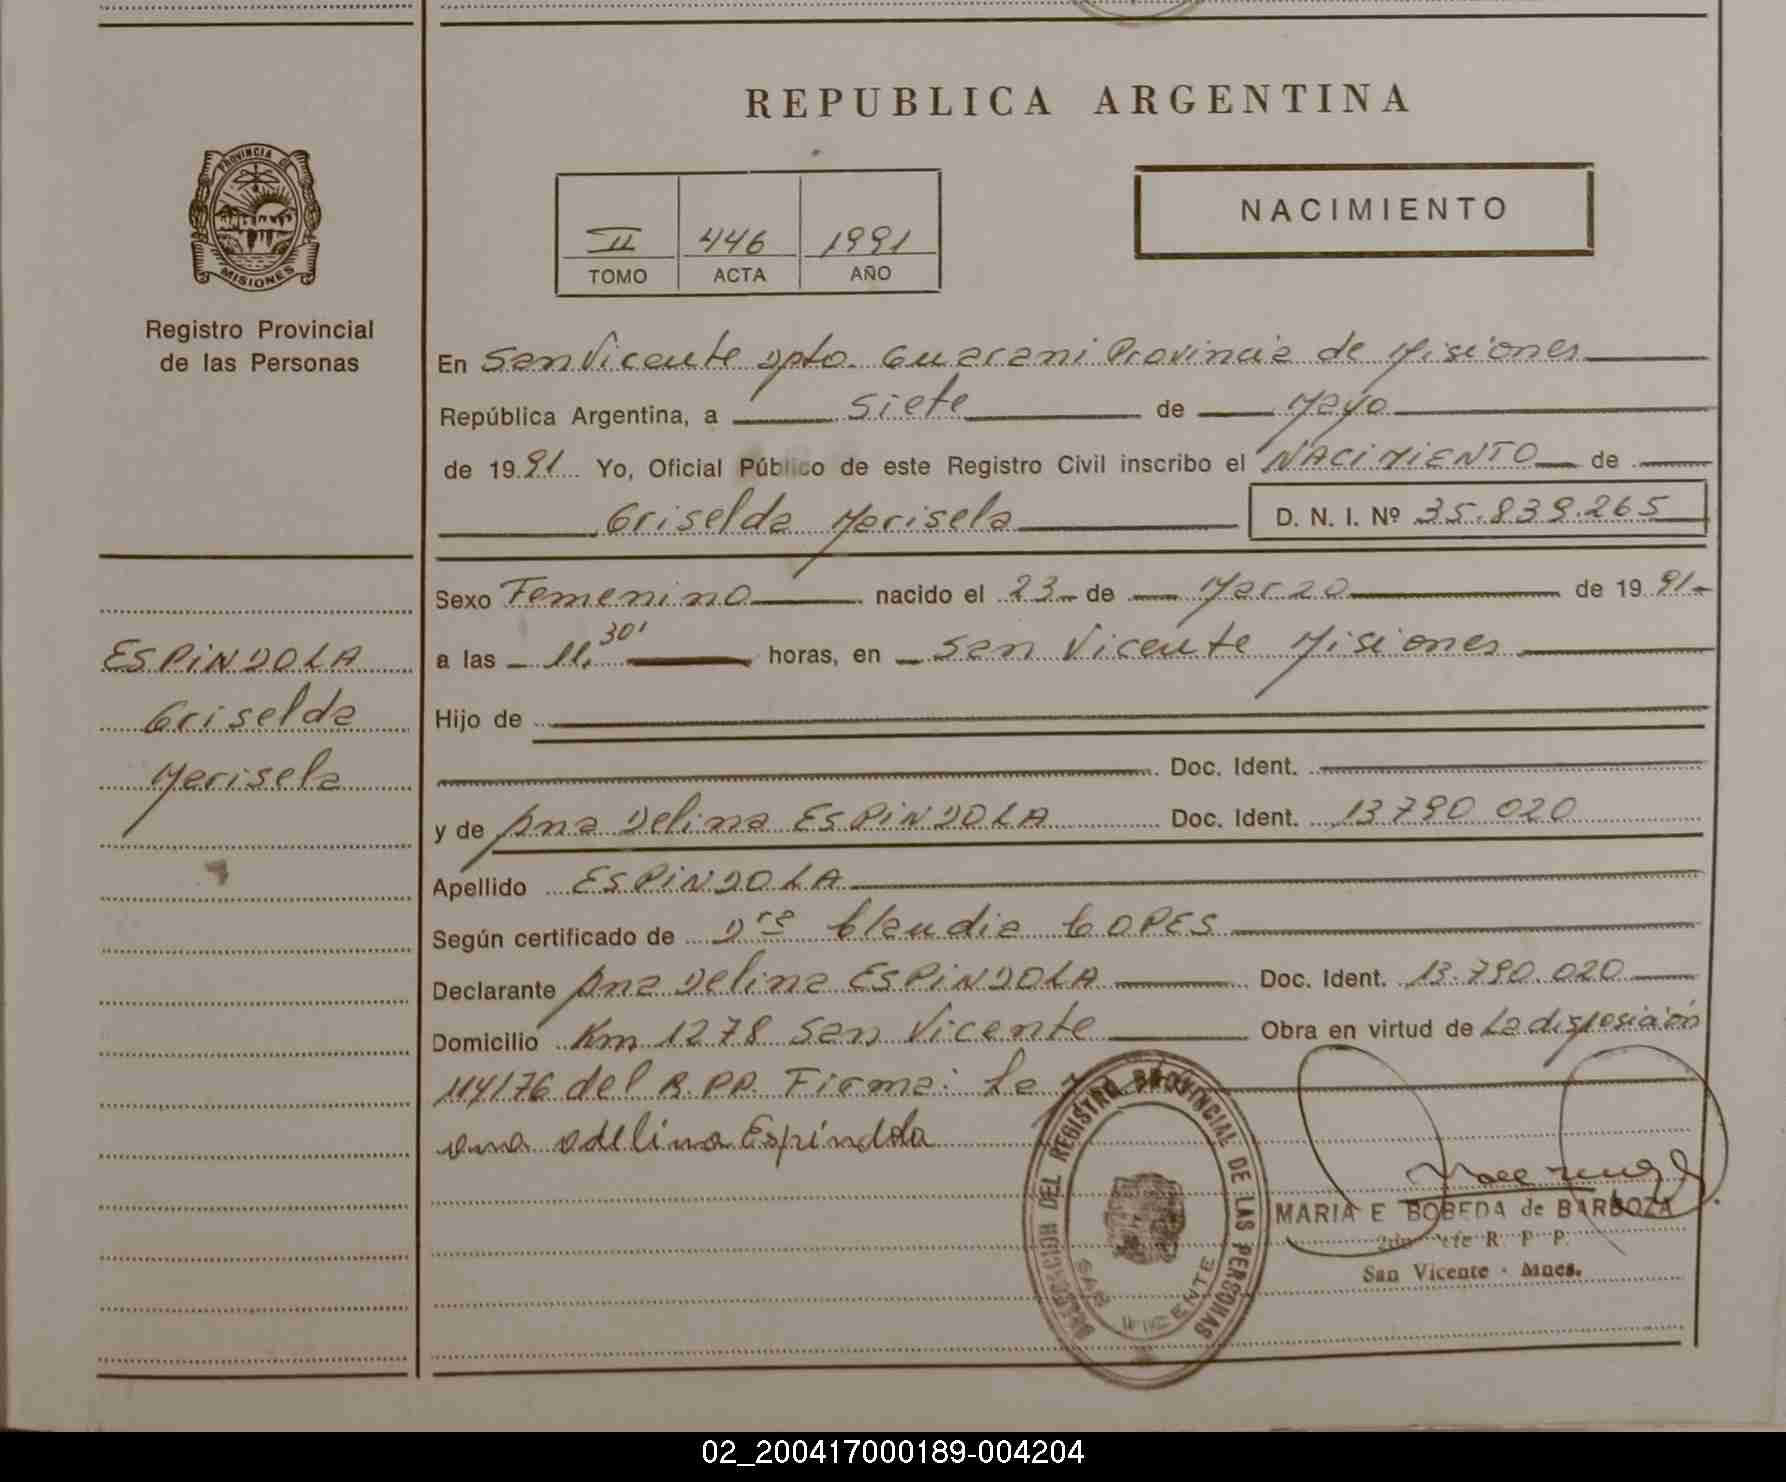 REPUBLICA ARGENTINA
PROVINCIA DE
MISIONES
Registro Provincial
de las Personas
II 446 1991
TOMO ACTA AÑO
NACIMIENTO
En San Vicente Dpto. Guarani Provincia de Misiones
República Argentina, a siete de Mayo
de 1991 Yo, Oficial Público de este Registro Civil inscribo el NACIMIENTO de
Griselda Marisela D. N. I. Nº 35.839.265
Sexo Femenino nacido el 23 de Marzo de 1991
a las 11.30' horas, en San Vicente Misiones
ESPINDOLA
Griselda
Marisela
Hijo de
Doc. Ident.
y de Ana Delina ESPINDOLA Doc. Ident. 13790020
Apellido ESPINDOLA
Según certificado de Dra Claudia LOPES
Declarante Ana Delina ESPINDOLA Doc. Ident. 13.790.020
Domicilio Km 1278 San Vicente Obra en virtud de La disposición
114/76 del R.PP. Firma: La
ana adelina Espíndola
DEL REGISTRO PROVINCIAL DE LAS PERSONAS
SAN VICENTE
MARIA E BOBEDA de BARBOZA
R. P P.
San Vicente - Mnes.
02_200417000189-004204